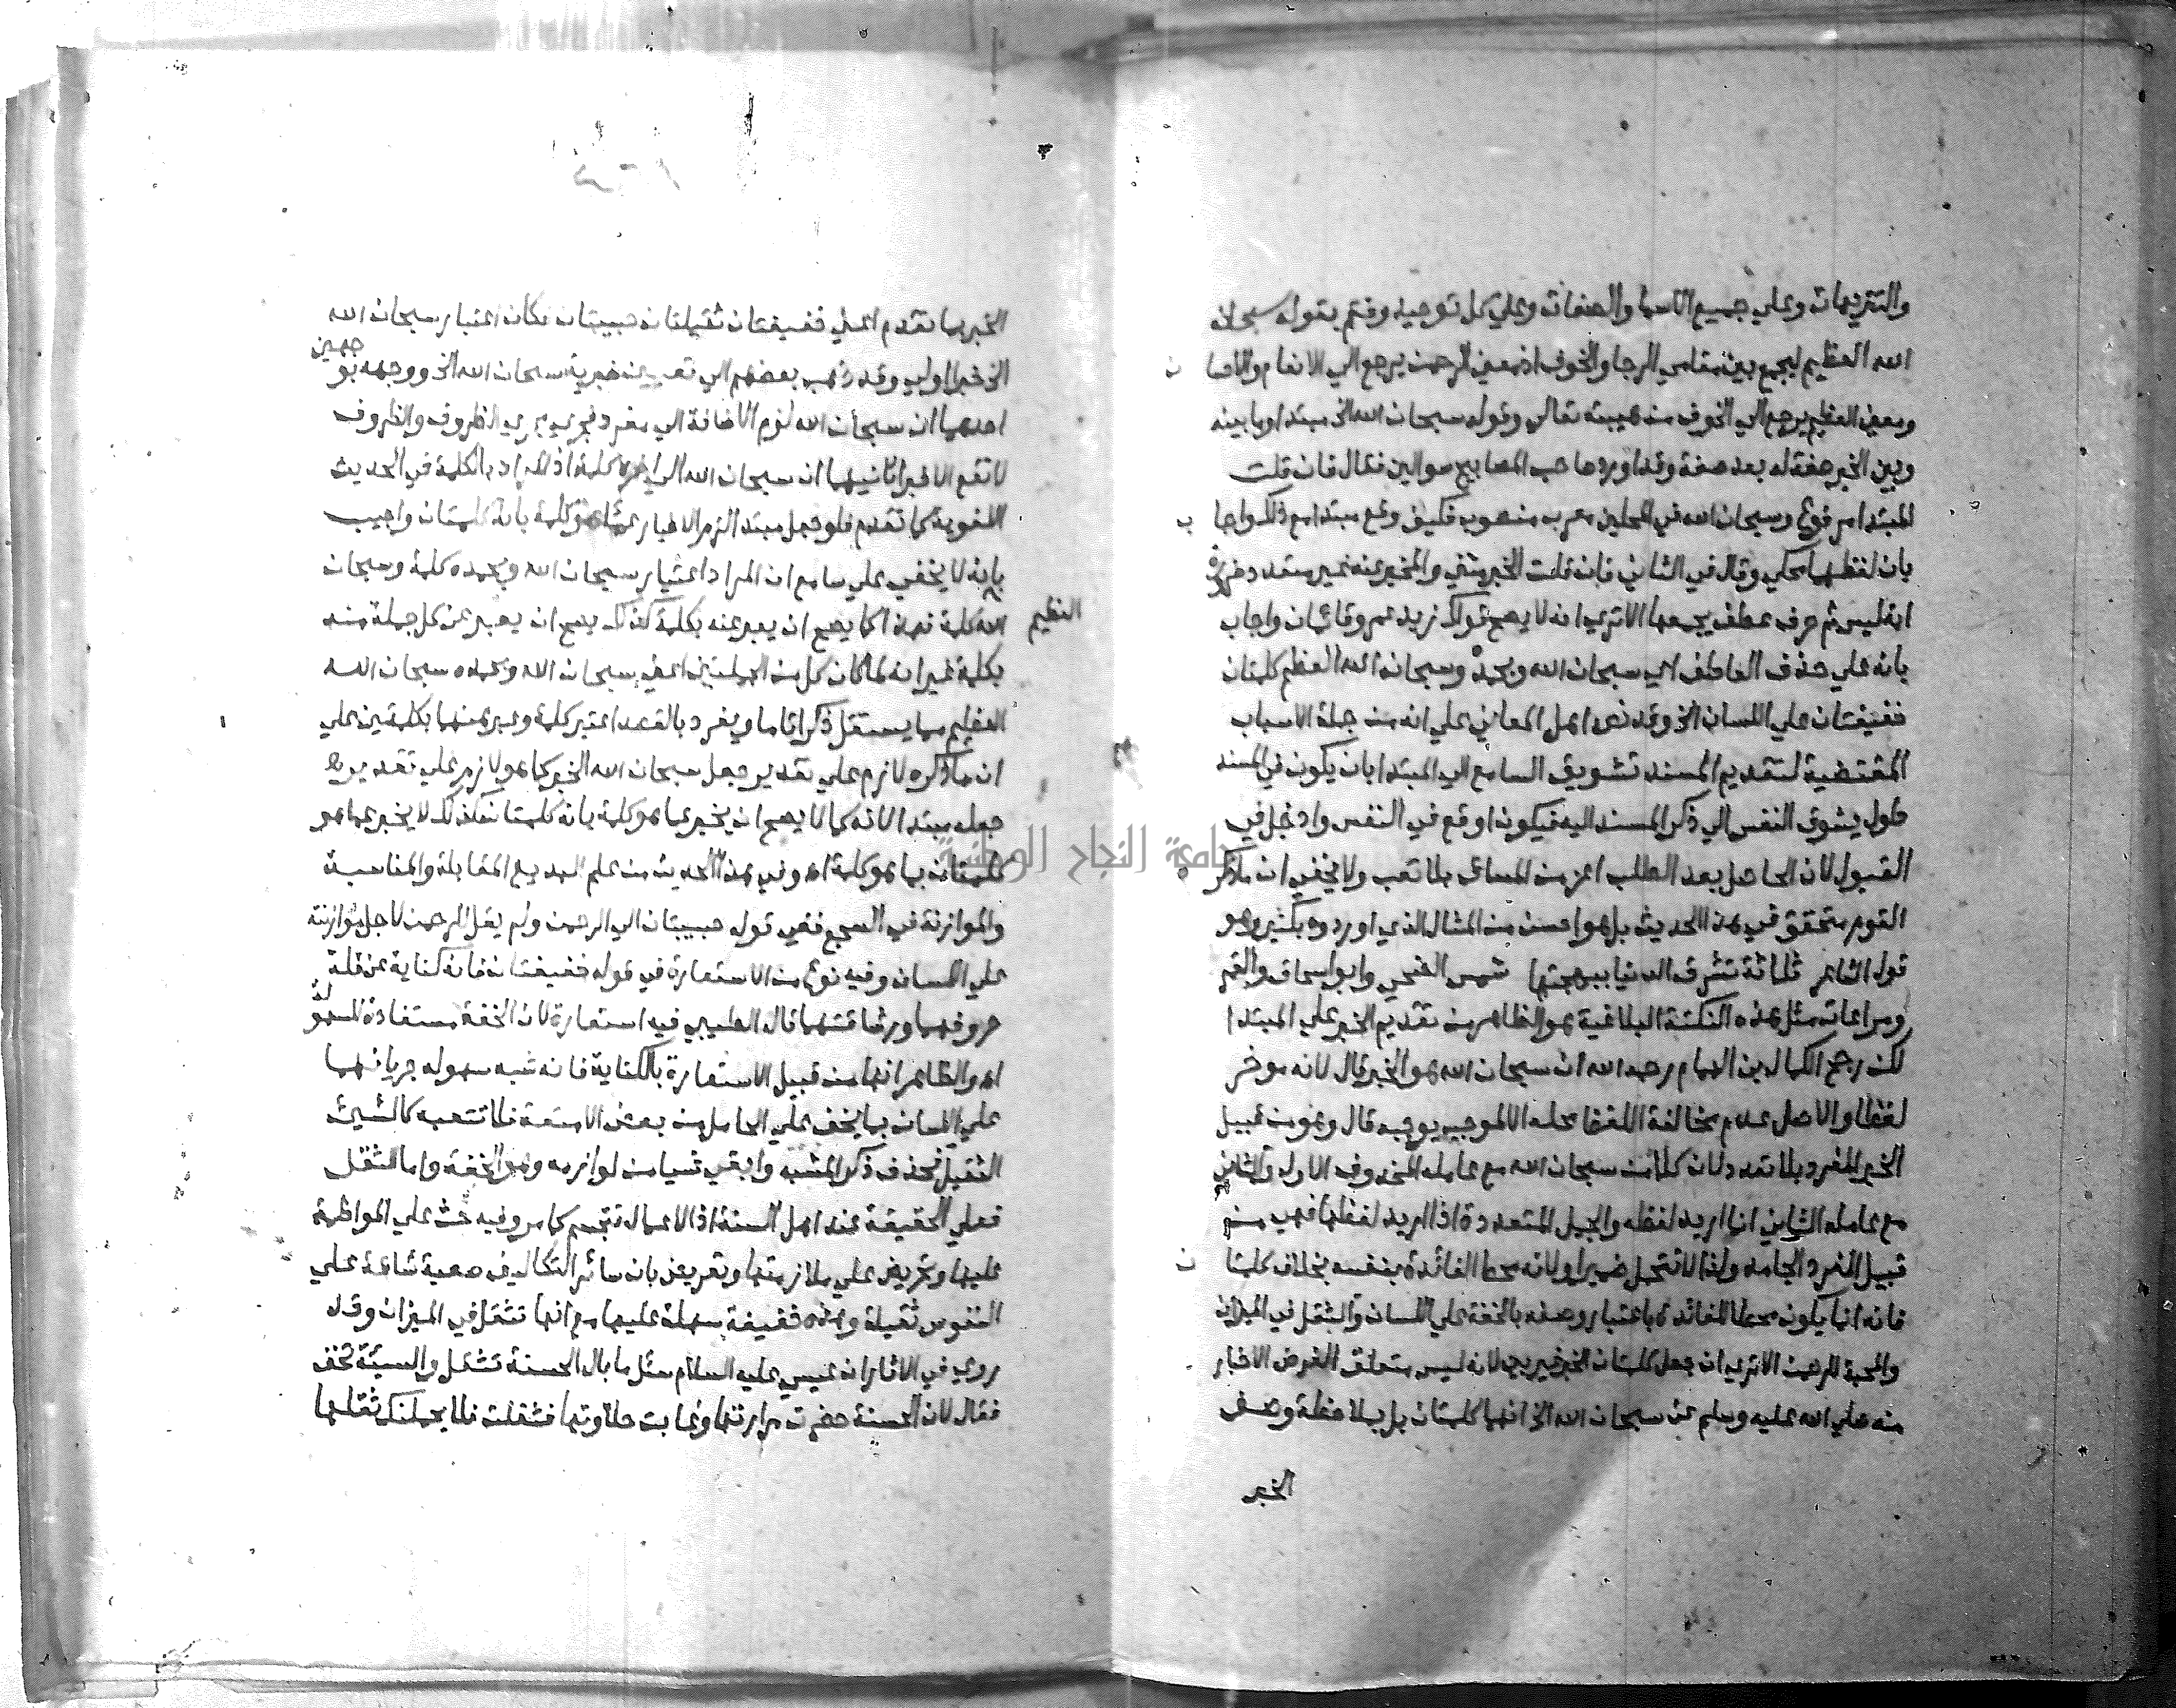 والتنزيهات وعلي جميع الاسما والصفات وعلي كل توحيد وختم بقوله سبحان
الله العظيم ليجمع بين مقامي الرجا والخوف اذ معني الرحمن يرجع الي الانعام والاحسا ن
ومعني العظيم يرجع الي الخوف من هيبته تعالي وقوله سبحان الله الخ مبتدا وما بينه
وبين الخبر صفة له بعد صفة وقد اورد صاحب المصابيح سوالين فقال فان قلت
المبتدا مرفوع وسبحان الله في المحلين معرب منصوب فكيف وقع مبتدا مع ذلك واجا ب
بان لفظهما محكي وقال في الثاني فان قلت الخبر مثني والمخبر عنه غير متعدد ضرورة
انه ليس ثم حرف عطف يجمعهما الاتري انه لا يصح قولك زيد عمرو قائمان واجاب
بانه علي حذف العاطف اي سبحان الله وبحمده وسبحان الله العظيم كلمتان
خفيفتان علي اللسان الخ وقد نص اهل المعاني علي انه من جملة الاسباب
المقتضية لتقديم المسند تشويق السامع الي المبتدا بان يكون في المسند
طول يشوق النفس الي ذكر المسند اليه فيكون اوقع في النفس وادخل في
القبول لان الحاصل بعد الطلب اعز من المساق بلا تعب ولا يخفي ان ما ذكر
القوم متحقق في هذا الحديث بل هو احسن من المثال الذي اوردوه بكثير وهو
قول الشاعر ثلاثة تشرق الدنيا ببهجتها شمس الضحي وابو اسحاق والقمر
ومراعاة مثل هذه النكتة البلاغية هو الظاهر من تقديم الخبر علي المبتدا
لكن رجح الكمال بن الهمام رحمه الله ان سبحان الله هو الخبر قال لانه موخر
لفظا والاصل عدم مخالفة اللفظ محله الا لموجب يوجبه قال وهو من قبيل
الخبر المفرد بلا تعدد لان كلا من سبحان الله مع عامله المحذوف الاول والثاني
مع عامله الثاني انما اريد لفظه والجمل المتعددة اذا اريد لفظها فهي من
قبيل المفرد الجامد ولذا لا تتحمل ضميرا ولانه محط الفائدة بنفسه بخلاف كلمتا ن
فانه انما يكون محطا للفائدة باعتبار وصفه بالخفة علي اللسان والثقل في الميزان
والمحبة للرحمن الاتري ان جعل كلمتان الخبر غير بين لانه ليس متعلق الغرض الاخبار
منه صلي الله عليه وسلم عن سبحان الله الخ انهما كلمتان بل بملاحظة وصف
الخبر
الخبر بما تقدم اعني خفيفتان ثقيلتان حبيبتان فكان اعتبار سبحان الله
الخ خبرا اولي وقد ذهب بعضهم الي تعيين خبرية سبحان الله الخ ووجهه بو جهين
احدهما ان سبحان الله لزم الاضافة الي مفرد فجري مجري الظروف والظروف
لا تقع الا خبرا ثانيهما ان سبحان الله الي اخره كلمة اذ المراد بالكلمة في الحديث
اللغوية كما تقدم فلو جعل مبتدا لزم الاخبار عما هو كلمة بانه كلمتان واجيب
بانه لا يخفي علي سامع ان المراد اعتبار سبحان الله وبحمده كلمة وسبحان
الله العظيم كلمة فهذا كما يصح ان يعبر عنه بكلمة كذلك يصح ان يعبر عن كل جملة منه
بكلمة غير انه لما كان كل من الجملتين اعني سبحان الله وبحمده سبحان الله
العظيم مما يستقل ذكرا تاما ويفرد بالقصد اعتبر كلمة وعبر عنهما بكلمتين علي
ان ما ذكره لازم علي تقدير جعل سبحان الله الخبر كما هو لازم علي تقدير
جعله مبتدا لانه كما لا يصح ان يخبر عما هو كلمة بانه كلمتان فكذلك لا يخبر عما هو
كلمتان بما هو كلمة اه وفي هذا الحديث من علم البديع المقابلة والمناسبة
والموازنة في السجع ففي قوله حبيبتان الي الرحمن ولم يقل للرحمن لاجل موازنته
علي اللسان وفيه نوع من الاستعارة في قوله خفيفتان فانه كناية عن قلة
حروفهما ورشاقتهما قال الطيبي فيه استعارة لان الخفة مستفادة للسهولة
اه والظاهر انها من قبيل الاستعارة بالكناية فانه شبه سهولة جريانهما
علي اللسان بما يخف علي الحامل من بعض الامتعة فلا تتعبه كالشيئ
الثقيل فحذف ذكر المشبه وابقي شيا من لوازمه وهو الخفة واما الثقل
فعلي الحقيقة عند اهل السنة اذ الاعمال تتجسم كما مر وفيه حث علي المواظبة
عليها وتحريض علي ملازمتها وتعريض بان سائر التكاليف صعبة شاقة علي
النفوس ثقيلة وهذه خفيفة سهلة عليها مع انها تثقل في الميزان وقد
روي في الاثار ان عيسي عليه السلام سئل ما بال الحسنة تثقل والسيئة تخف
فقال لان الحسنة حضرت مرارتها وغابت حلاوتها فثقلت فلا يحملنك ثقلها
جامعة النجاح الوطنية